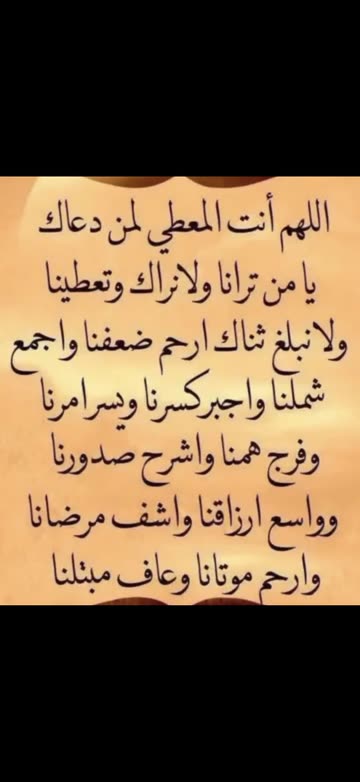 اللهم أنت المعطي لمن دعاك
يا من ترانا ولانراك وتعطينا
ولانبلغ ثناك ارحم ضعفنا واجمع
شملنا واجبركسرنا ويسرامرنا
وفرج همنا واشرح صدورنا
وواسع ارزاقنا واشف مرضانا
وارحم موتانا وعاف مبتلنا